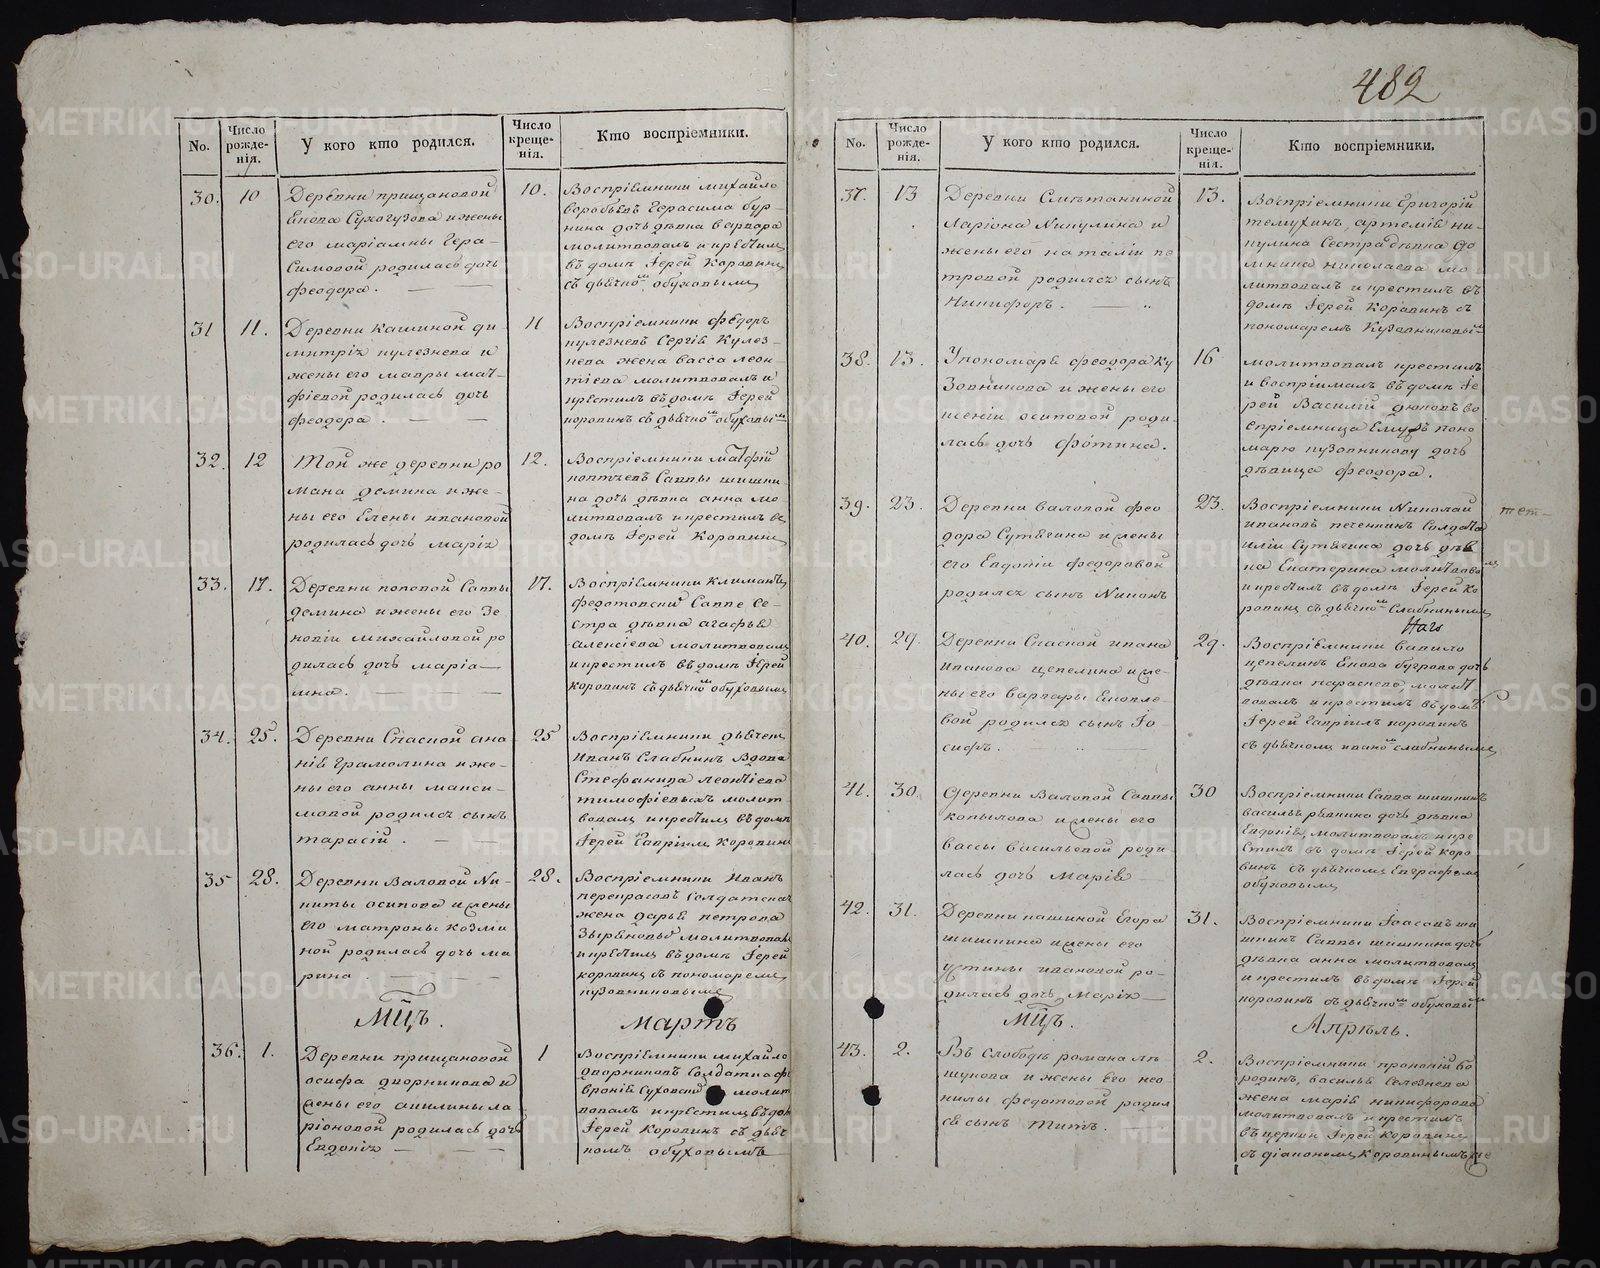 482
No.
Число рожденія.
У кого кто родился.
Число крещенія.
Кто воспріемники.
30.
10
Деревни прищановой
Екова Сухогузова и жены
его маріамны Гера-
Симовой родилась дочь
феодора.
10.
Воспріемники михайло
воробьевъ Герасима бур-
нина дочь девка варвара
молитвовалъ и крестилъ
въ доме Іерей Коровинъ
съ дьячкомъ обуховымъ
31
11.
Деревни кашиной ди-
митрія кулезнева и
жены его мавры мат-
фіевой родилась дочь
феодора.
11
Воспріемники феодоръ
кулезневъ Сергія Кулез-
нева жена васса леон-
тіева молитвовалъ и
крестилъ въ доме Іерей
коровинъ съ дьячкомъ обуховымъ
32.
12
Той же деревни ро
мана демина и же-
ны его Елены ивановой
родилась дочь марія
12.
Воспріемники матфій
коптевъ Саввы шишки-
на дочь девка анна мо-
литвовалъ и крестилъ въ
доме Іерей Коровинъ
33.
17.
Деревни поповой Саввы
демина и жены его Зе-
новіи михайловой ро
дилась дочь маріа-
мна.
17.
Воспріемники
Се-
стра девка агафья
алексіева молитвовалъ
и крестилъ въ доме Іерей
коровинъ съ дьячкомъ обуховымъ
34.
25.
Деревни Спасной ана-
нія Грамолина и же-
ны его анны макси-
мовой родился сынъ
тарасій.
25
Воспріемники дьячекъ
Иванъ Слабнинъ Вдова
Стефанида леонтіева
молит-
вовалъ и крестилъ въ доме
Іерей Гавріилъ Коровинъ
35
28.
Деревни Валовой Ни-
киты осипова и жены
его матроны козми
ной родилась дочь ма
рина.
28.
Воспріемники Иванъ
некрасовъ Солдатская
жена дарья петрова
молитвовалъ
и крестилъ въ доме Іерей
коровинъ съ пономаремъ
кузовниковымъ
Мцъ.
Мартъ
36.
1.
Деревни прищановой
осифа дворникова и
жены его акилины ла
ріоновой родилась дочь
Евдокія
1
Воспріемники михайло
дворниковъ Солдатка фе
вронія молит
вовалъ и крестилъ въ доме
Іерей Коровинъ съ дьяч
комъ обуховымъ
No.
Число рожденія.
У кого кто родился.
Число крещенія.
Кто воспріемники.
37.
13
Деревни Сметаниной
Ларіона Никулина и
жены его наталіи пе
тровой родился сынъ
Никифоръ.
13.
Воспріемники Григорій
темухинъ, артемія ни-
кулина Сестра девка До
мнина николаева мо
литвовалъ и крестилъ въ
доме Іерей Коровинъ съ
пономаремъ Кузовниковымъ
38.
13.
У пономаря феодора Ку
Зовникова и жены его
ксеніи осиповой роди
лась дочь фотина.
16
молитвовалъ крестилъ
и воспріималъ въ доме Іе
рей Василій дюковъ во
спріемница Емужъ поно
марю кузовникову дочь
девица феодора.
39.
23.
Деревни валовой фео
дора Сутягина и жены
его Евдокіи федоровой
родился сынъ Никонъ
23.
Воспріемники Николай
ивановъ печенкинъ Солдата
иліи Сутягина дочь дев
ка Екатерина молитвовалъ
и крестилъ въ доме Іерей Ко
ровинъ съ дьячкомъ Слабнинымъ
40.
29.
Деревни Спасной ивана
иванова цепелина и же-
ны его варвары Еколе-
вой родился сынъ Іо
сифъ.
29.
Воспріемники вавило
цепелинъ Екова бугрова дочь
девка параскева, молит
вовалъ и крестилъ въ доме
Іерей Гавріилъ коровинъ
съ дьячкомъ иваномъ слабнинымъ
41.
30.
Деревни Валовой Саввы
копылова и жены его
вассы васильевой роди
лась дочь Марія
30
Воспріемники Савва шишкинъ
василья рябкина дочь девка
Евдокія, молитвовалъ и кре
стилъ въ доме Іерей коро
винъ съ дьячкомъ Евграфомъ
обуховымъ
42.
31.
Деревни кашиной Егора
шишкина и жены его
устины ивановой ро-
дилась дочь Марія
31.
Воспріемники Іоасавъ ши
шкинъ Саввы шишкина дочь
девка анна молитвовалъ
и крестилъ въ доме Іерей
коровинъ съ дьячкомъ обуховымъ
Мцъ.
Апрель.
43.
2.
Въ слободе романа ля
щукова и жены его нео
нилы федотовой родил
ся сынъ титъ.
2.
Воспріемники прокопій бо
родинъ, василья Селезнева
жена марія никифорова
молитвовалъ и крестилъ
въ церкви Іерей Коровинъ
съ діакономъ коровинымъ же